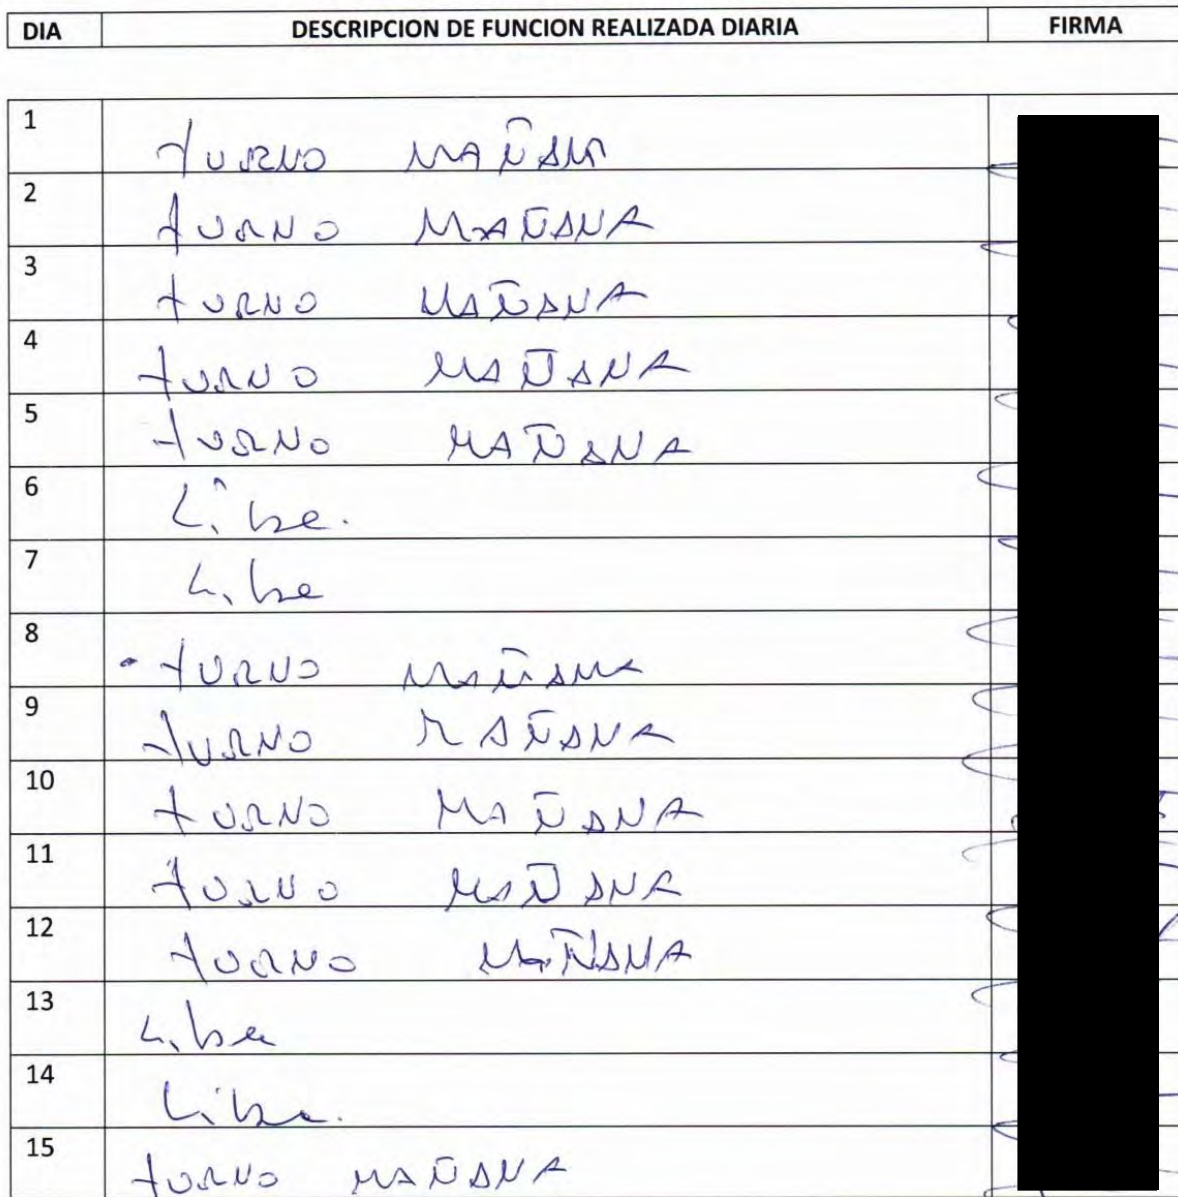 DIA DESCRIPCION DE FUNCION REALIZADA DIARIA FIRMA
1 TURNO MAÑANA
2 TURNO MAÑANA
3 TURNO MAÑANA
4 TURNO MAÑANA
5 TURNO MAÑANA
6 Libre.
7 Libre
8 TURNO MAÑANA
9 TURNO MAÑANA
10 TURNO MAÑANA
11 TURNO MAÑANA
12 TURNO MAÑANA
13 Libre
14 Libre.
15 TURNO MAÑANA